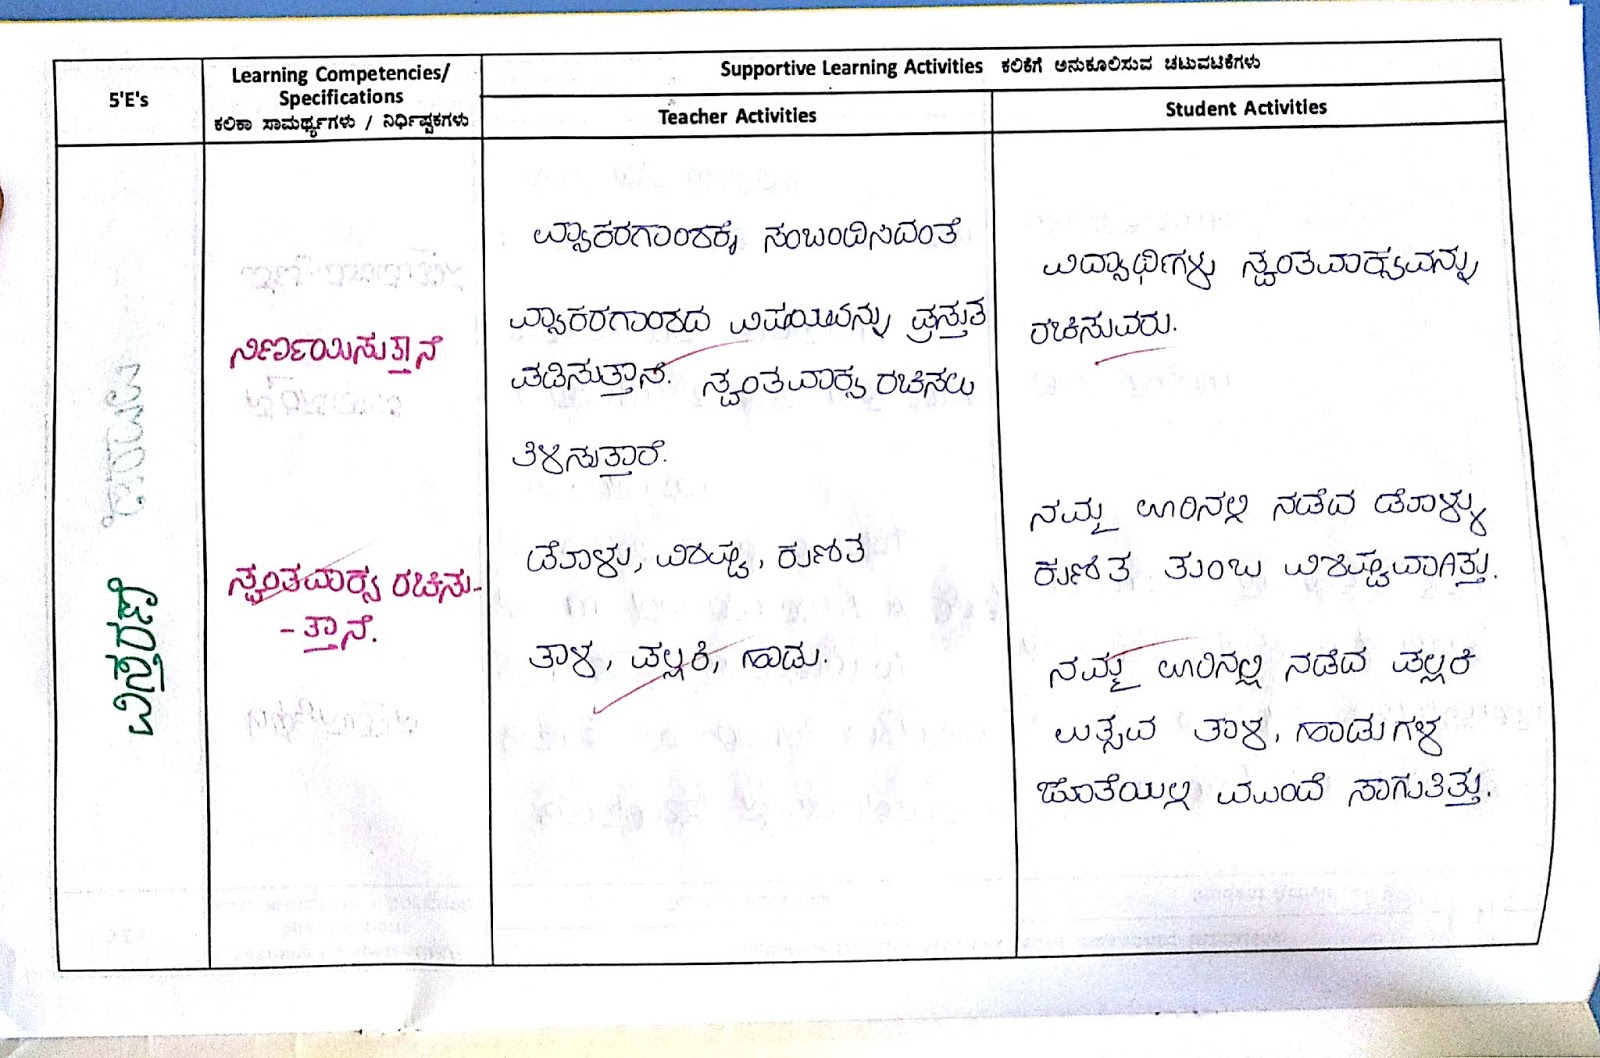 5'E's
Learning Competencies/
Specifications
ಕಲಿಕಾ ಸಾಮರ್ಥ್ಯಗಳು / ನಿರ್ಧಿಷ್ಟಕಗಳು
Supportive Learning Activities ಕಲಿಕೆಗೆ ಅನುಕೂಲಿಸುವ ಚಟುವಟಿಕೆಗಳು
Teacher Activities
Student Activities
ವಿಸ್ತರಣೆ
ನಿರ್ಣಯಿಸುತ್ತಾನೆ
ಸ್ವಂತವಾಕ್ಯ ರಚಿಸು-
- ತ್ತಾನೆ.
ವ್ಯಾಕರಣಾಂಶಕ್ಕೆ ಸಂಬಂದಿಸಿದಂತೆ
ವ್ಯಾಕರಣಾಂಶದ ವಿಷಯವನ್ನು ಪ್ರಸ್ತುತ
ಪಡಿಸುತ್ತಾನೆ. ಸ್ವಂತವಾಕ್ಯ ರಚಿಸಲು
ತಿಳಿಸುತ್ತಾರೆ.
ಡೊಳ್ಳು, ವಿಶಿಷ್ಟ, ಕುಣಿತ
ತಾಳ, ಪಲ್ಲಕಿ, ಹಾಡು.
ವಿದ್ಯಾರ್ಥಿಗಳು ಸ್ವಂತವಾಕ್ಯವನ್ನು
ರಚಿಸುವರು.
ನಮ್ಮ ಊರಿನಲ್ಲಿ ನಡೆದ ಡೊಳ್ಳು
ಕುಣಿತ ತುಂಬ ವಿಶಿಷ್ಟವಾಗಿತ್ತು.
ನಮ್ಮ ಊರಿನಲ್ಲಿ ನಡೆದ ಪಲ್ಲಕಿ
ಉತ್ಸವ ತಾಳ, ಹಾಡುಗಳ
ಜೊತೆಯಲ್ಲಿ ಮುಂದೆ ಸಾಗುತಿತ್ತು.